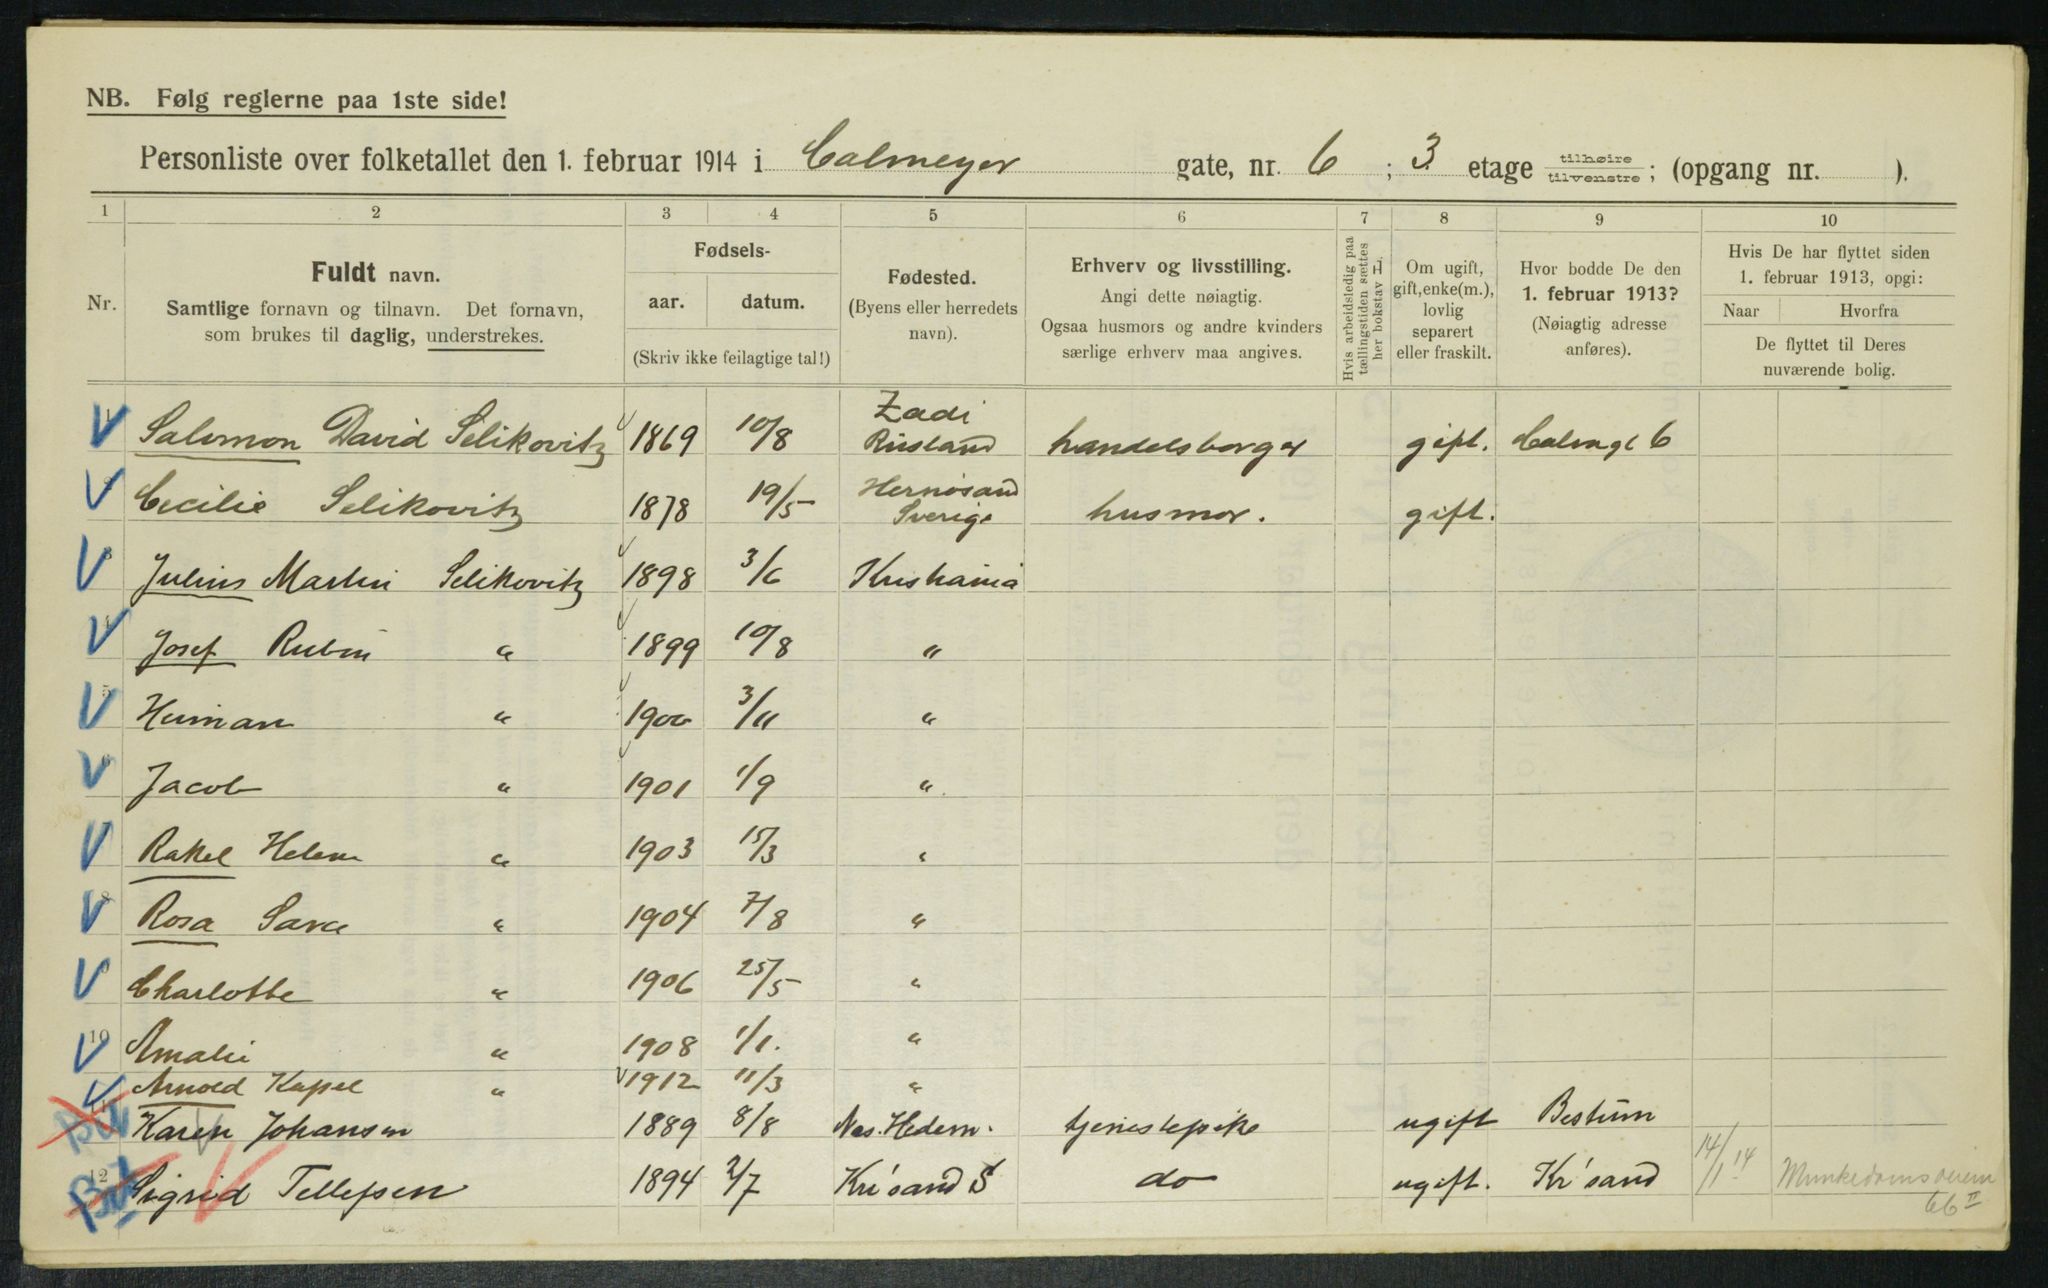 NB. Følg reglerne paa 1ste side!
Personliste over folketallet den 1. februar 1914 i Calmeyer gate, nr. 6 ; 3 etage tilhøire tilvenstre ; (opgang nr. ).
1 2 3 4 5 6 7 8 9 10
Nr.
Fuldt navn.
Samtlige fornavn og tilnavn. Det fornavn,
som brukes til daglig, understrekes.
Fødsels-
aar. datum.
(Skriv ikke feilagtige tal!)
Fødested.
(Byens eller herredets
navn).
Erhverv og livsstilling.
Angi dette nøiagtig.
Ogsaa husmors og andre kvinders
særlige erhverv maa angives.
Hvis arbeidsledig paa
tællingstiden sættes
her bokstav L.
Om ugift,
gift, enke(m.),
lovlig
separert
eller fraskilt.
Hvor bodde De den
1. februar 1913?
(Nøiagtig adresse
anføres).
Hvis De har flyttet siden
1. februar 1913, opgi:
Naar Hvorfra
De flyttet til Deres
nuværende bolig.
1 Salomon David Selikovitz 1869 10/8 Zadi Rusland handelsborger gift. Calmgt 6
2 Cecilie Selikovitz 1878 19/5 Hernøsand Sverige husmor. gift.
3 Julius Martin Selikovitz 1898 3/6 Kristiania
4 Josef Rubin " 1899 10/8 "
5 Herman " 1900 3/11 "
6 Jacob " 1901 1/9 "
7 Rakel Helene " 1903 15/3 "
8 Rosa Sara " 1904 7/8 "
9 Charlotte " 1906 25/5 "
10 Amalie " 1908 1/1. "
Arnold Kapel " 1912 11/3 "
11 Karen Johansen 1889 8/8 Nes. Hedem. tjenestepike ugift Bestum
12 Sigrid Tellefsen 1894 2/7 Kr'sand S do ugift. Kr'sand 14/1 14 Munkedamsveien
66 II